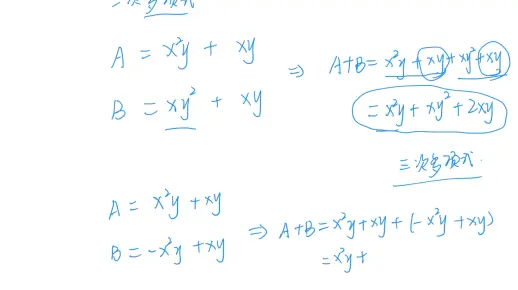 二次多项式
A = x²y + xy
⇒ A+B = x²y + xy + xy² + xy
B = xy² + xy
= x²y + xy² + 2xy
三次多项式.
A = x²y + xy
B = -x²y + xy
⇒ A+B = x²y + xy + (-x²y + xy)
= x²y +